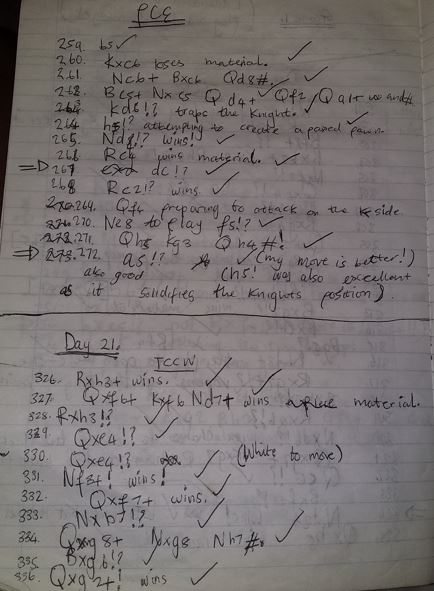 PCE
259. b5 ✓
260. Kxc6 loses material. ✓
261. Nc6+ Bxc6 Qd8#. ✓
262. Bc5+ Nxc5 Qd4+ Qf2 Qa1+ and #.
263. Kd8!? traps the Knight. ✓
264 h5!? attempting to create a passed pawn.
265. Nd8!? wins! ✓
266 Rc4 wins material. ✓
267 dc!? ✓
268 Rc2!? wins. ✓
269. Qf4 preparing to attack on the Kside.
270. Ne8 to play f5!? ✓
271. Qh5 Kg3 Qh4#! ✓
272. a5!? ✓ (my move is better!)
also good (h5! was also excellent
as it solidifies the Knights position).
Day 21.
TCCW
326. Rxh3+ wins. ✓
327. Qxf6+ Kxf6 Nd7+ wins material.
328. Rxh3!? ✓
329. Qxe4!? ✓
330. Qxe4!? ✓ (White to move)
331. Nf3+! wins! ✓
332. Qxf7+ wins. ✓
333. Nxb7!? ✓
334. Qxg8+ Nxg8 Nh7#. ✓
335. Bxg6!? ✓
336. Qxg2+! wins ✓